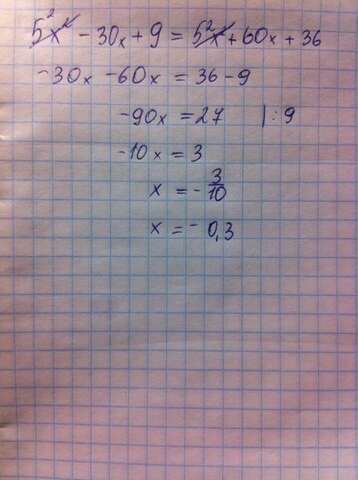 5²x² - 30x + 9 = 5²x² + 60x + 36
-30x - 60x = 36 - 9
-90x = 27 | : 9
-10x = 3
x = - 3/10
x = - 0,3